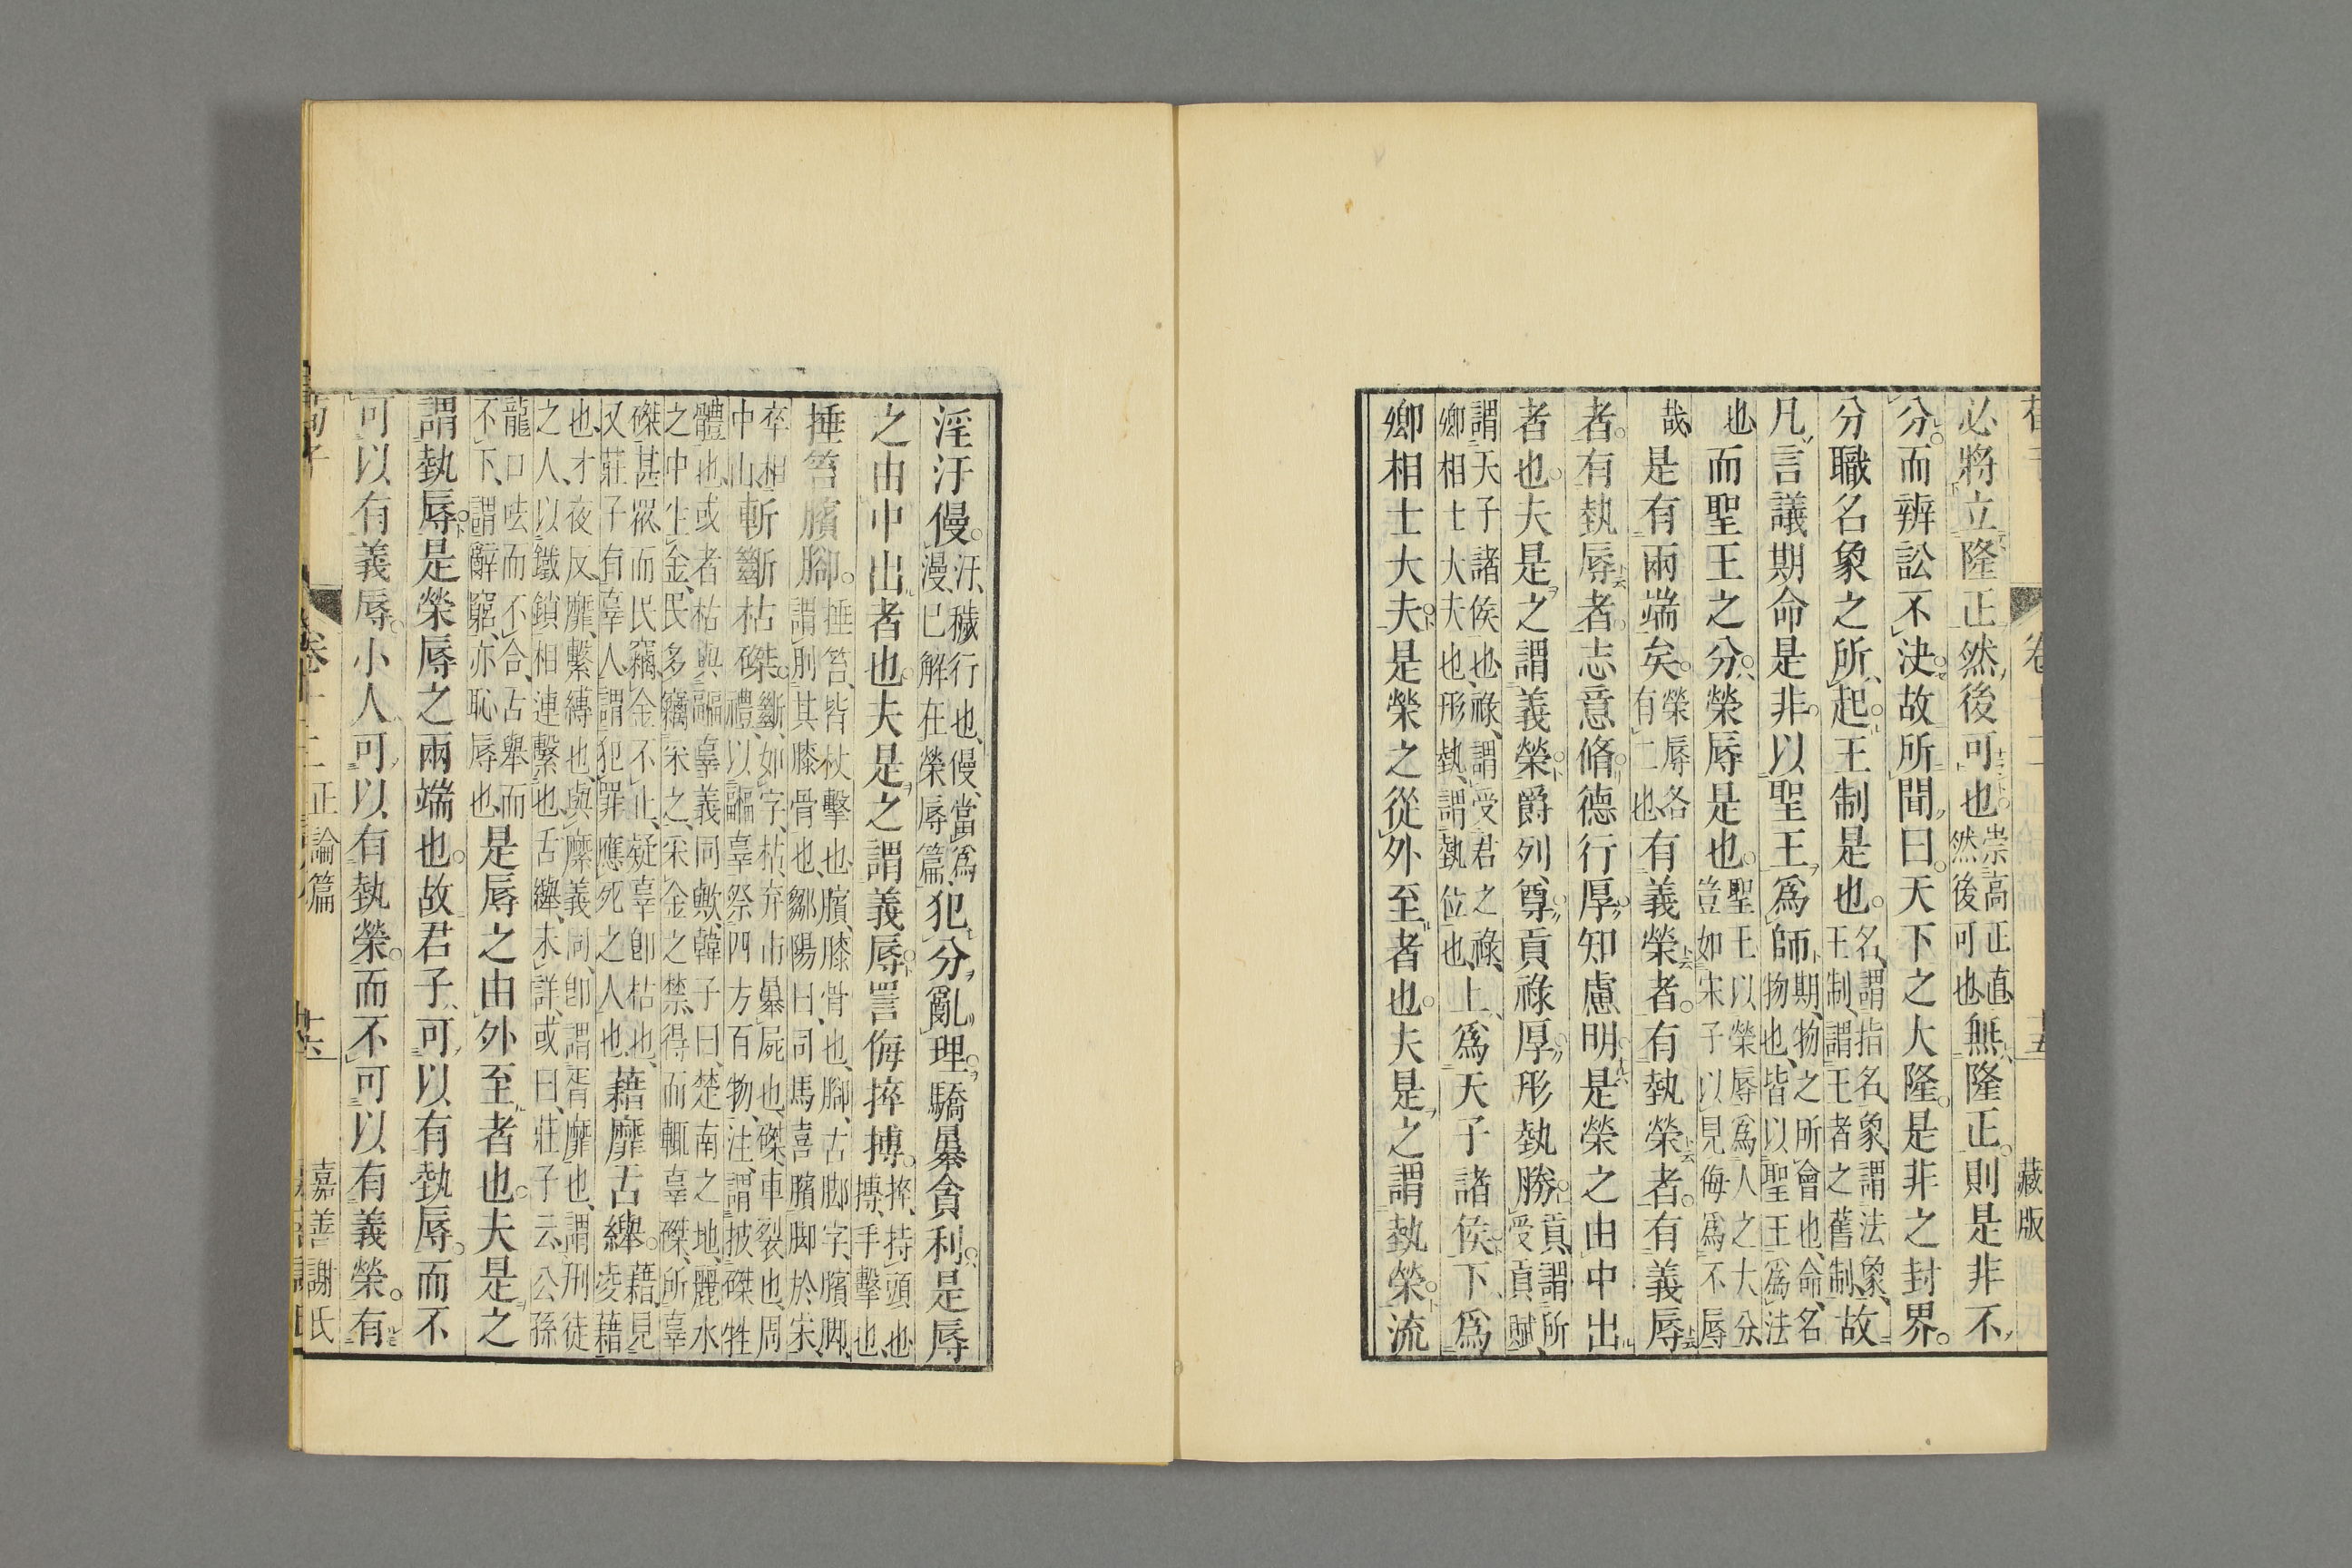 必將立隆正然後可也崇高正直然後可也無隆正則是非不
分而辨訟不決故所聞曰天下之大隆是非之封界
分職名象之所起王制是也名謂指名象謂法象王制謂王者之舊制故
凡言議期命是非以聖王爲師期物之所會也命名物也皆以聖王爲法
也而聖王之分榮辱是也聖王以榮辱爲人之大分豈如宋子以見侮爲不辱
哉是有兩端矣榮辱各有二也有義榮者有埶榮者有義辱
者有埶辱者志意脩德行厚知慮明是榮之由中出
者也夫是之謂義榮爵列尊貢祿厚形埶勝貢謂所受貢賦
謂天子諸侯也祿謂受君之祿卿相士大夫也形埶謂埶位也上爲天子諸侯下爲
卿相士大夫是榮之從外至者也夫是之謂埶榮流
藏版
淫汙僈汙穢行也僈當爲漫已解在榮辱篇犯分亂理驕暴貪利是辱
之由中出者也夫是之謂義辱詈侮捽搏捽持頭也搏手擊也
捶笞臏腳捶笞皆杖擊也臏膝骨也腳古脚字臏脚謂刖其膝骨也鄒陽曰司馬喜臏脚於宋
卒相中山斬斷枯磔斷如字枯弃市暴屍也磔車裂也周禮以疈辜祭四方百物注謂披磔牲
體也或者枯與疈辜義同歟韓子曰楚南之地麗水之中生金民多竊采之采金之禁得而輒辜磔所辜
磔甚衆而民竊金不止疑辜卽枯也又莊子有辜人謂犯罪應死之人也藉靡舌纆藉見凌藉
也才夜反靡繫縛也與縻義同卽謂胥靡也謂刑徒之人以鐵鎖相連繫也舌纆未詳或曰莊子云公孫
龍口呿而不合舌舉而不下謂辭窮亦恥辱也是辱之由外至者也夫是之
謂埶辱是榮辱之兩端也故君子可以有埶辱而不
可以有義辱小人可以有埶榮而不可以有義榮有
荀子 卷十二 正論篇 十六 嘉善謝氏